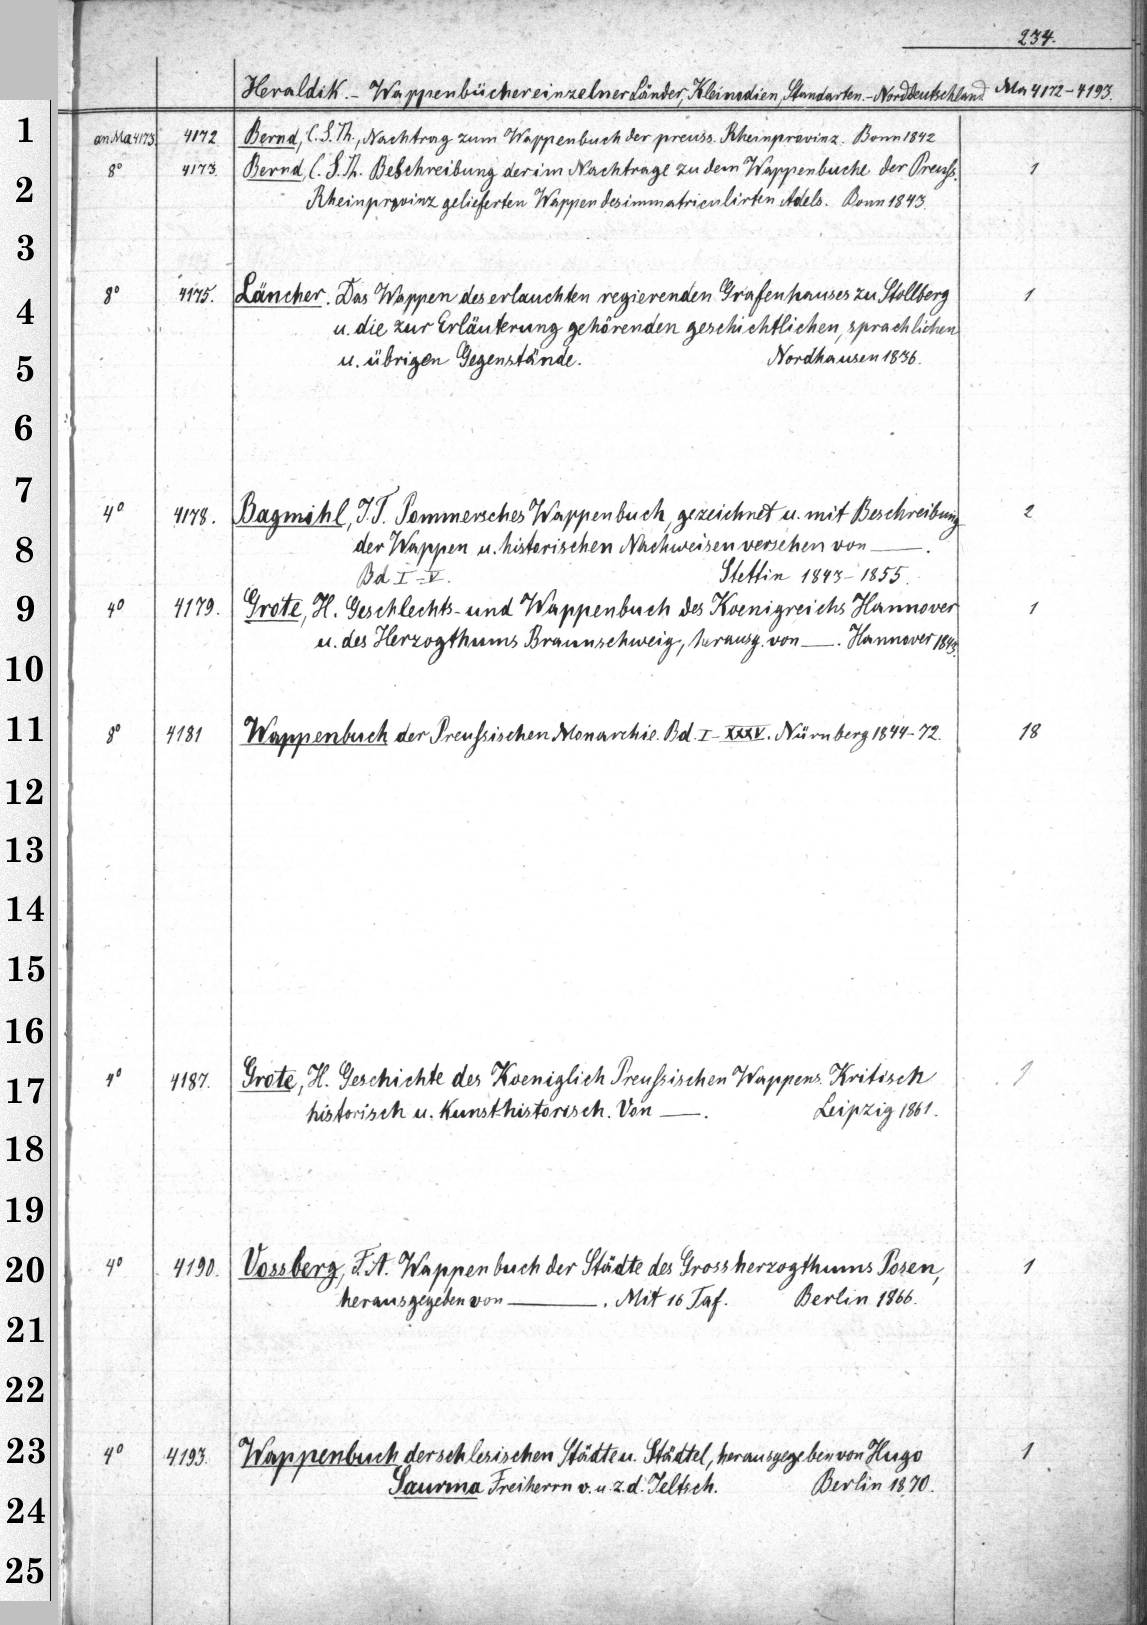 234.
Heraldik. - Wappenbücher einzelner Länder, Kleinodien, Standarten. - Norddeutschland Ma 4172-4193.
1
an Ma 4173. 4172 Bernd, C. S. Th., Nachtrag zum Wappenbuch der preuss. Rheinprovinz. Bonn 1842
8° 4173. Bernd, C. S. Th. Beschreibung der im Nachtrage zu dem Wappenbuche der Preuß. 1
2
Rheinprovinz gelieferten Wappen des immatriculirten Adels. Bonn 1843.
3
8° 4175. Läncher. Das Wappen des erlauchten regierenden Grafenhauses zu Stollberg 1
4
u. die zur Erläuterung gehörenden geschichtlichen, sprachlichen
5
u. übrigen Gegenstände. Nordhausen 1836.
6
7
4° 4178. Bagmihl, J. T. Pommersches Wappenbuch, gezeichnet u. mit Beschreibung 2
8
der Wappen u. historischen Nachweisen versehen von —.
Bd I-V. Stettin 1843-1855.
9
4° 4179. Grote, H. Geschlechts- und Wappenbuch des Koenigreichs Hannover 1
u. des Herzogthums Braunschweig, herausg. von —. Hannover 1843.
10
11
8° 4181 Wappenbuch der Preußsischen Monarchie. Bd. I-XXXV. Nürnberg 1844-72. 18
12
13
14
15
16
4° 4187. Grote, H. Geschichte des Koeniglich Preußsischen Wappens. Kritisch 1
17
historisch u. kunsthistorisch. Von —. Leipzig 1861.
18
19
20
4° 4190. Vossberg, F. A. Wappenbuch der Städte des Grossherzogthums Posen, 1
herausgegeben von —. Mit 16 Taf. Berlin 1866.
21
22
23
4° 4193. Wappenbuch der schlesischen Städte u. Städtel, herausgegeben von Hugo 1
Saurma Freiherrn v. u. z. d. Jeltsch. Berlin 1870.
24
25